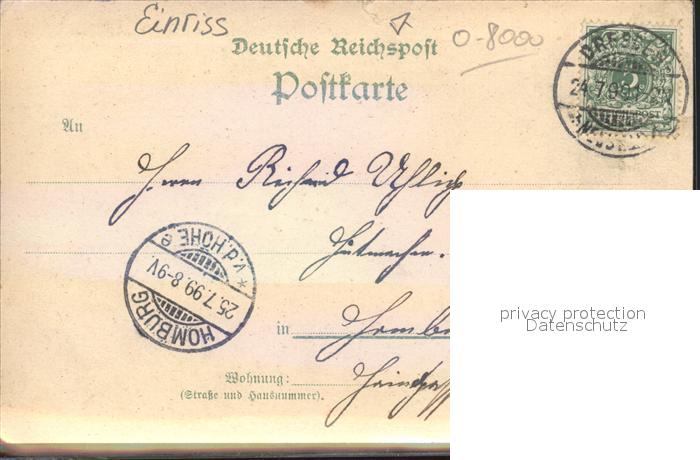 Einriss
Deutsche Reichspost
0-8000
Postkarte
DRESDEN
24.7.99
An
Herrn Richard Uhlig
Hutmacher.
HOMBURG
25.7.99.8-9V.
v.d.HÖHE e
in Hombu
privacy protection
Datenschutz
Wohnung:
(Straße und Hausnummer).